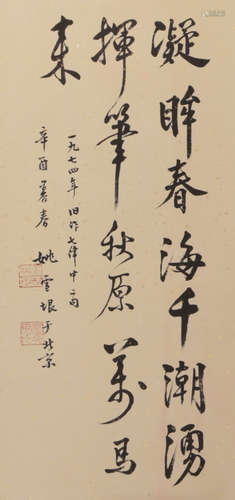 凝眸春海千潮湧
揮筆秋原萬馬
来
一九七四年旧作七律中二句
辛酉暮春
姚雪垠于北京